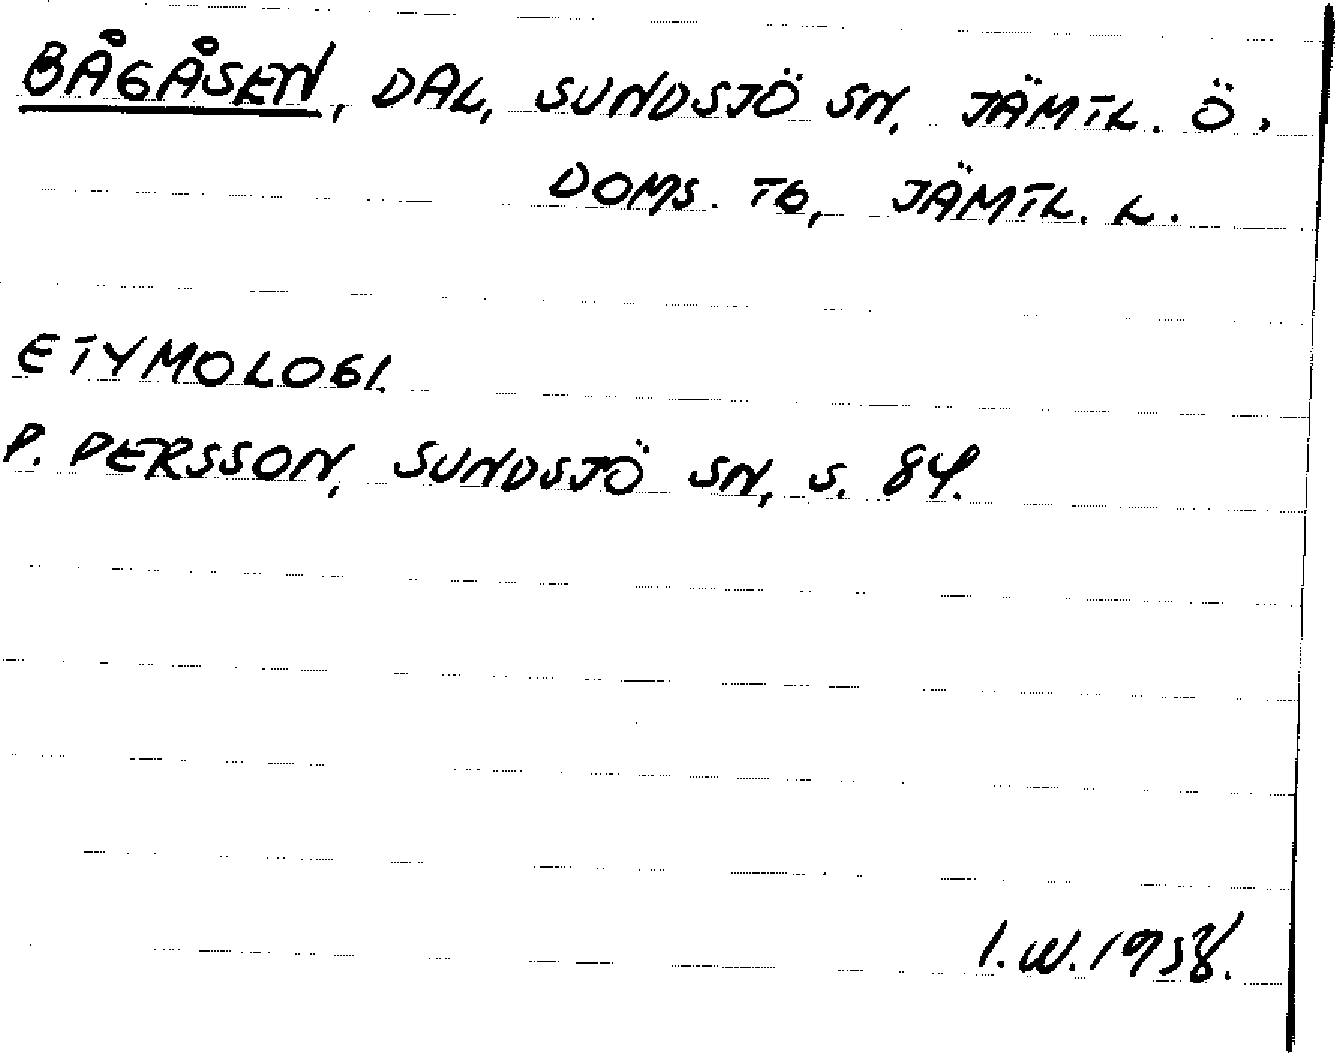 BÅGÅSEN, DAL, SUNDSJÖ SN, JÄMTL. Ö,
DOMS. TG, JÄMTL. L.
ETYMOLOGI.
P. PERSSON, SUNDSJÖ SN, S. 84.
I.W. 1958.